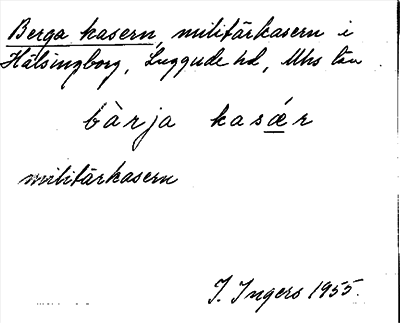 Berga kasern, militärkasern i
Hälsingborg, Luggude hd, Mhs län
bàrja kasǽr
militärkasern
I. Ingers 1955.